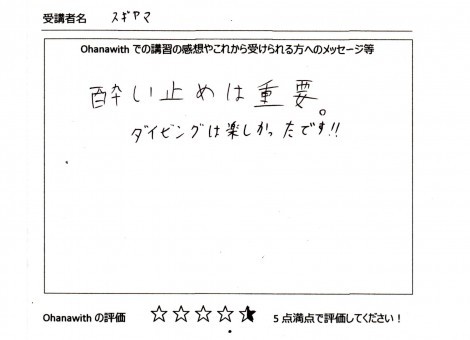 受講者名 スギヤマ
Ohanawith での講習の感想やこれから受けられる方へのメッセージ等
酔い止めは重要。
ダイビングは楽しかったです!!
Ohanawith の評価 ☆☆☆☆★ 5 点満点で評価してください!